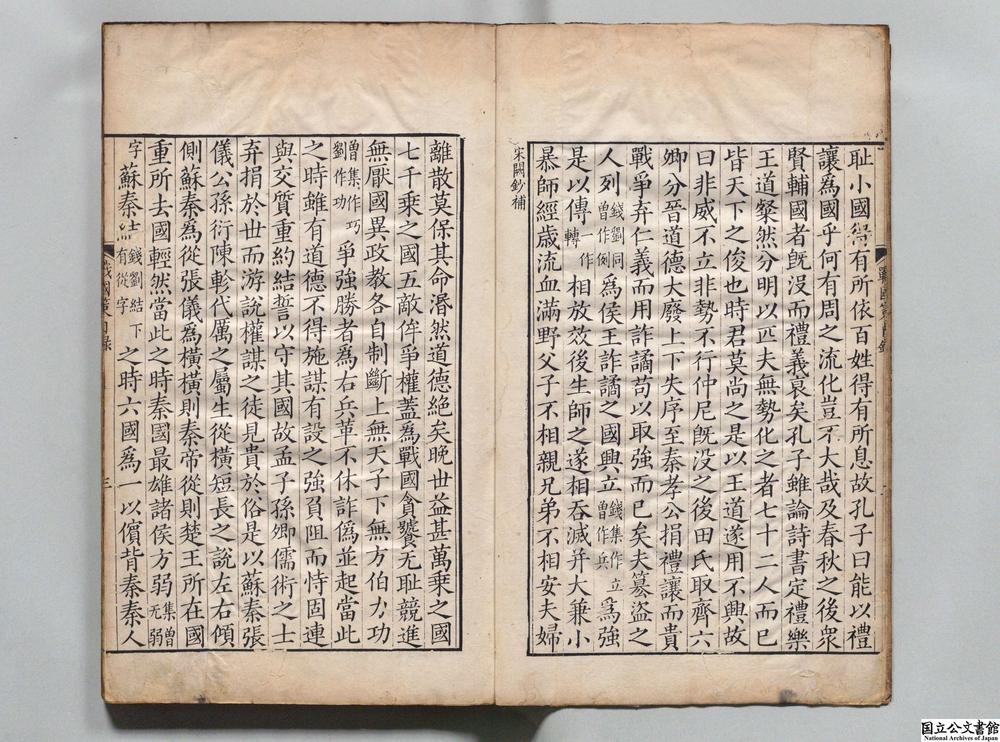 耻小國得有所依百姓得有所息故孔子曰能以禮
讓為國乎何有周之流化豈不大哉及春秋之後衆
賢輔國者旣没而禮義衰矣孔子雖論詩書定禮樂
王道粲然分明以匹夫無勢化之者七十二人而已
皆天下之俊也時君莫尚之是以王道遂用不興故
曰非威不立非勢不行仲尼旣没之後田氏取齊六
卿分晉道德大廢上下失序至秦孝公捐禮讓而貴
戰爭弃仁義而用詐譎苟以取強而已矣夫篡盜之
人列錢劉同曾作例為侯王詐譎之國興立錢集作立曾作兵為強
是以傳轉作相放效後生師之遂相吞滅并大兼小
暴師經歳流血滿野父子不相親兄弟不相安夫婦
宋闕鈔補
離散莫保其命湣然道德絶矣晚世益甚萬乘之國
七千乘之國五敵侔爭權蓋為戰國貪饕无耻競進
無厭國異政教各自制斷上無天子下無方伯力功
曾集作巧劉作功爭強勝者為右兵革不休詐僞並起當此
之時雖有道德不得施謀有設之強負阻而恃固連
與交質重約結誓以守其國故孟子孫卿儒術之士
弃捐於世而游說權謀之徒見貴於俗是以蘇秦張
儀公孫衍陳軫代厲之屬生從橫短長之說左右傾
側蘇秦為從張儀為橫橫則秦帝從則楚王所在國
重所去國輕然當此之時秦國最雄諸侯方弱集曾无弱
字蘇秦結錢劉結下有從字之時六國為一以儐背秦秦人
戰國策目錄
三
国立公文書館
National Archives of Japan